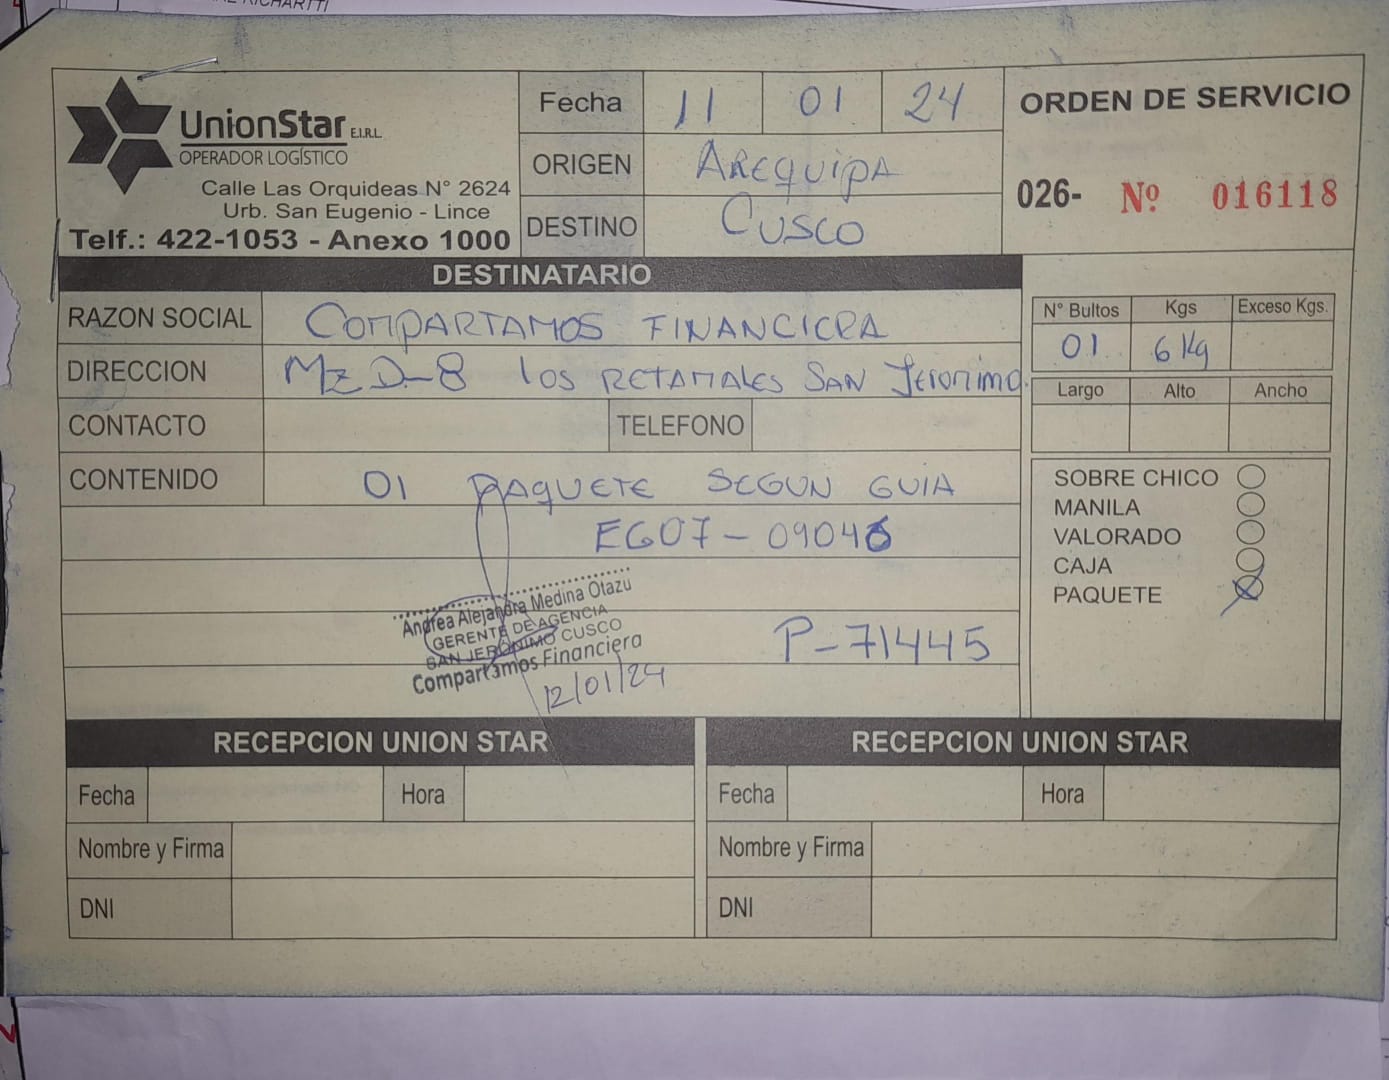 RICHARTTI
UnionStar E.I.R.L.
OPERADOR LOGÍSTICO
Calle Las Orquideas N° 2624
Urb. San Eugenio - Lince
Telf.: 422-1053 - Anexo 1000
Fecha 11 01 24
ORIGEN AREQUIPA
DESTINO CUSCO
ORDEN DE SERVICIO
026- Nº 016118
DESTINATARIO
RAZON SOCIAL COMPARTAMOS FINANCIERA
DIRECCION MZ D-8 LOS RETAMALES SAN JERONIMO
CONTACTO TELEFONO
CONTENIDO 01 PAQUETE SEGUN GUIA
EG07-09046
P-71445
Andrea Alejandra Medina Otazu
GERENTE DE AGENCIA
SAN JERÓNIMO CUSCO
Compartamos Financiera
12/01/24
N° Bultos Kgs Exceso Kgs.
01 6 Kg
Largo Alto Ancho
SOBRE CHICO
MANILA
VALORADO
CAJA
PAQUETE
RECEPCION UNION STAR
Fecha Hora
Nombre y Firma
DNI
RECEPCION UNION STAR
Fecha Hora
Nombre y Firma
DNI